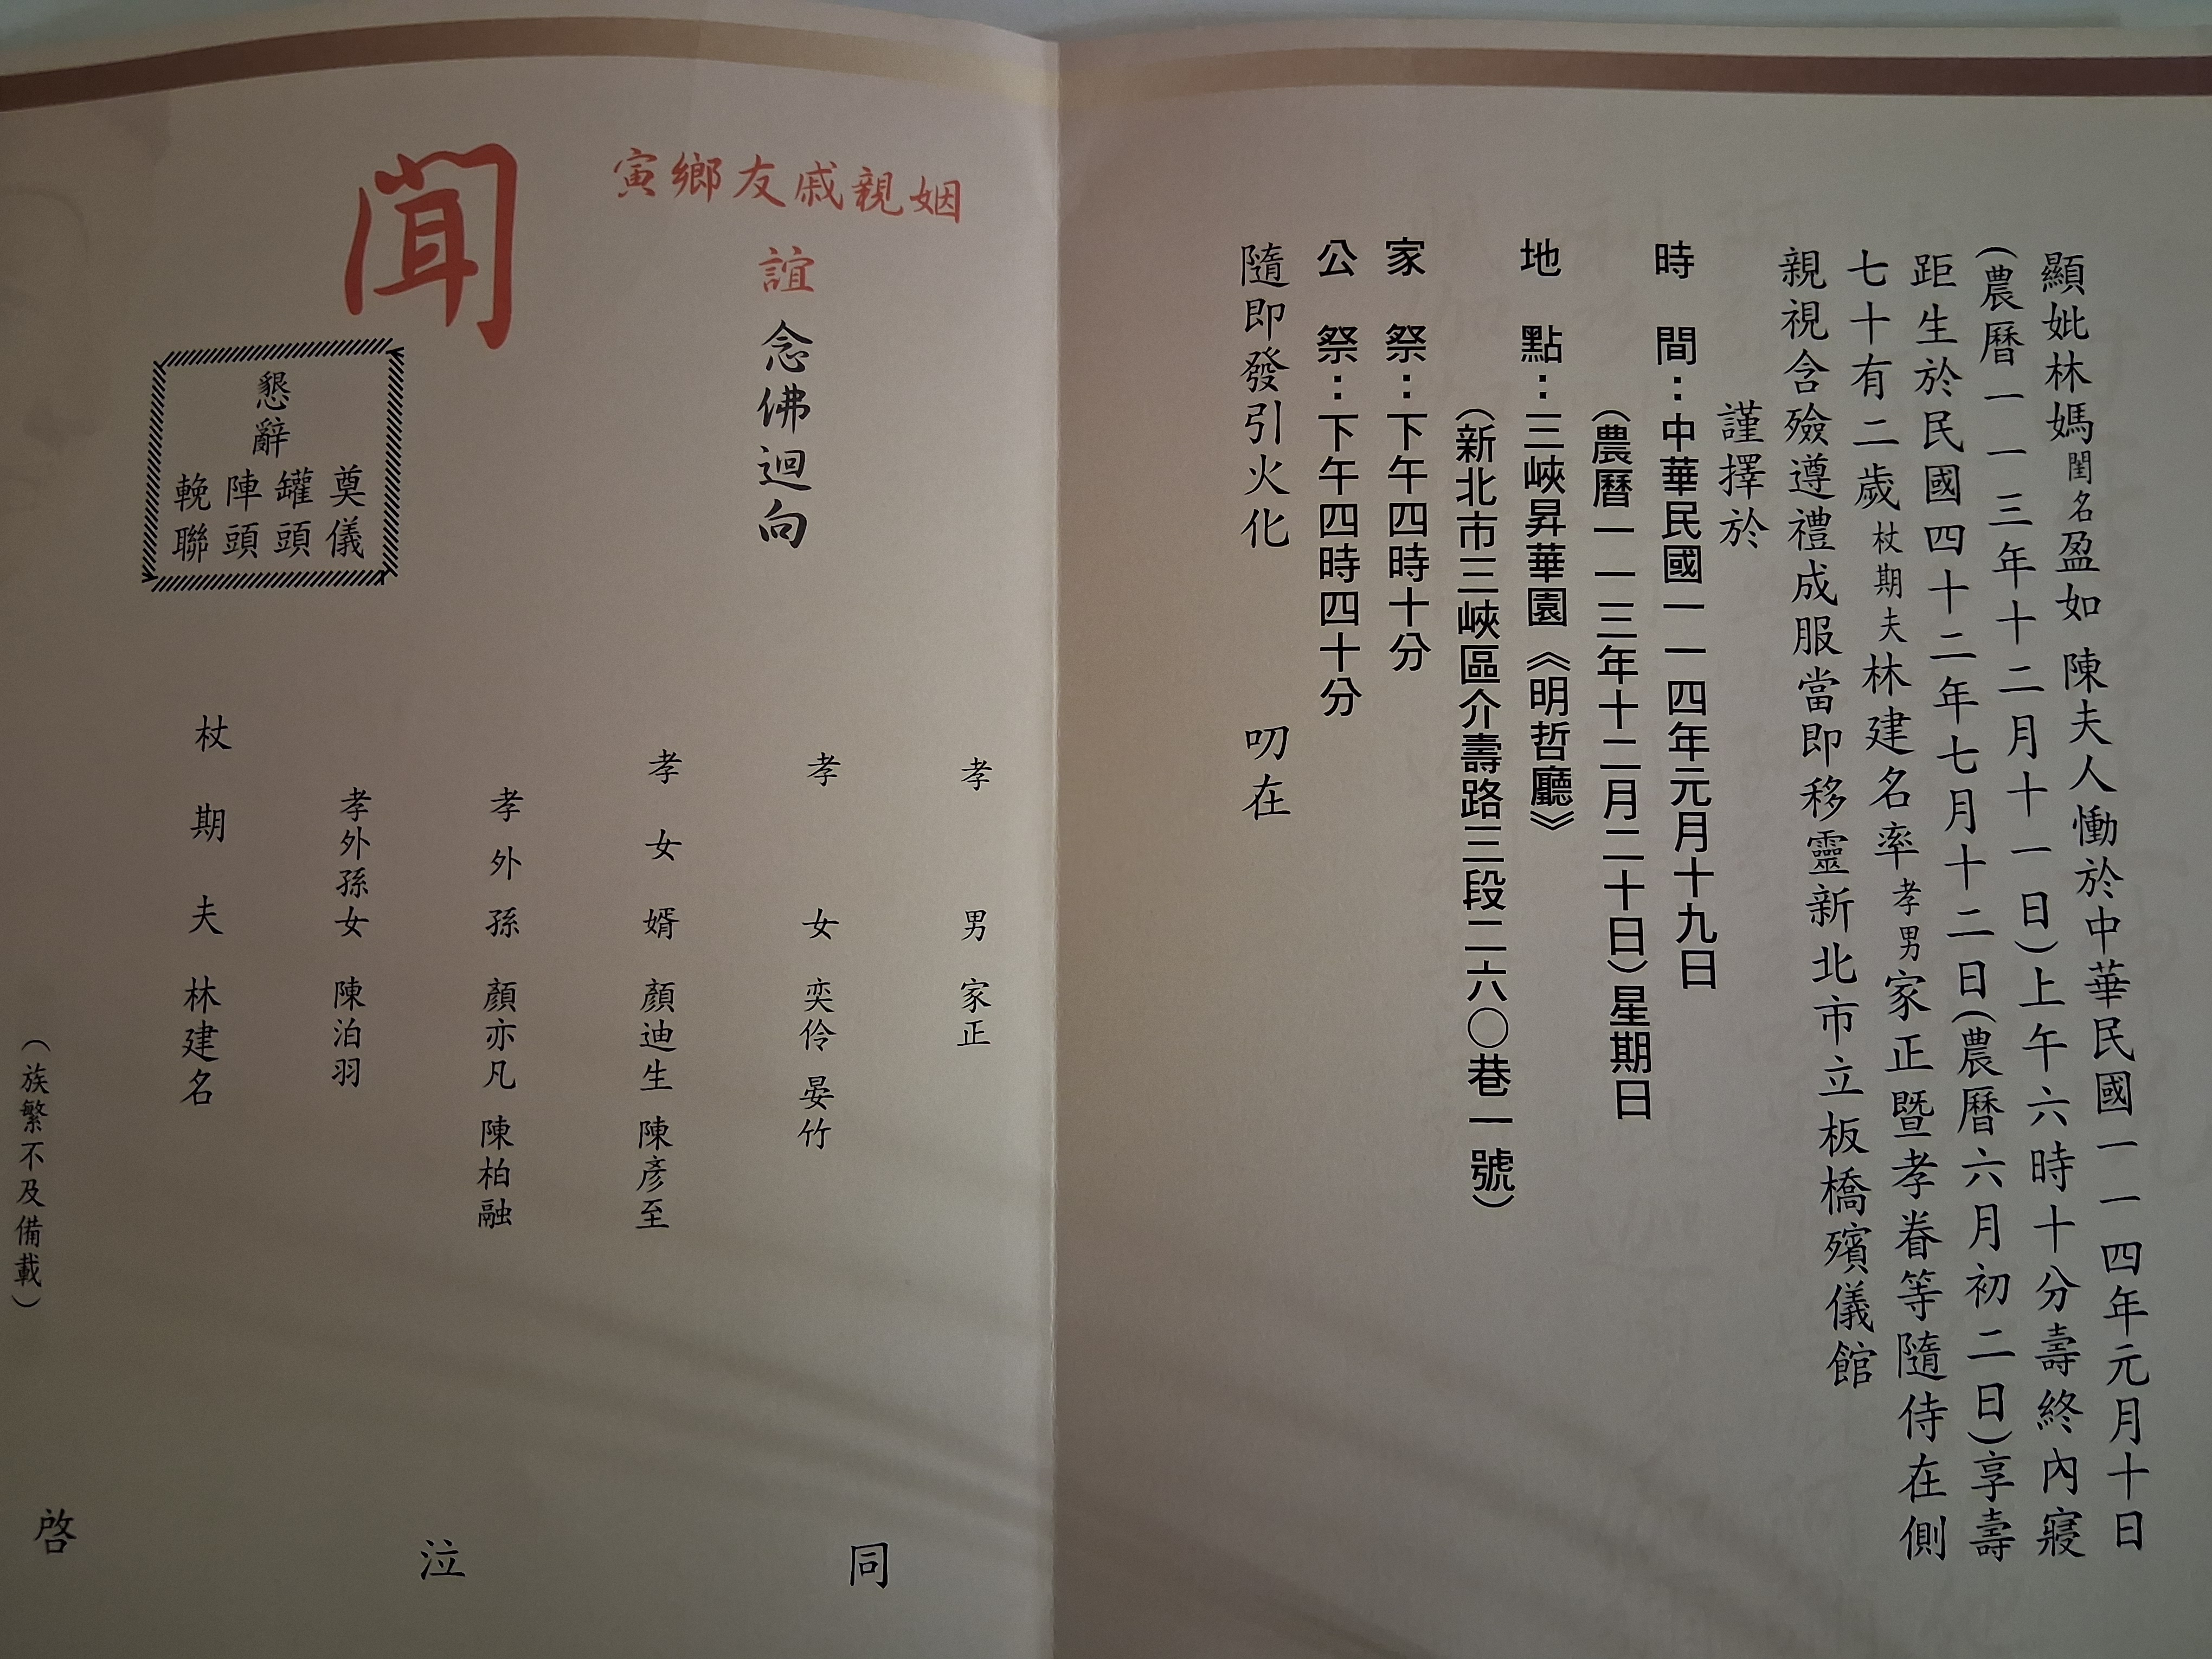 顯妣林媽閨名盈如 陳夫人慟於中華民國一一四年元月十日
(農曆一一三年十二月十一日)上午六時十分壽終內寢
距生於民國四十二年七月十二日(農曆六月初二日)享壽
七十有二歲杖期夫林建名率孝男家正暨孝眷等隨侍在側
親視含殮遵禮成服當即移靈新北市立板橋殯儀館
謹擇於
時 間：中華民國一一四年元月十九日
(農曆一一三年十二月二十日)星期日
地 點：三峽昇華園《明哲廳》
(新北市三峽區介壽路三段二六〇巷一號)
家 祭：下午四時十分
公 祭：下午四時四十分
隨即發引火化 叨在
姻親戚友鄉寅
誼 念佛迴向
聞
懇辭
奠儀
罐頭
陣頭
輓聯
孝男 家正
孝女 奕伶 晏竹
孝女婿 顏迪生 陳彥至
孝外孫 顏亦凡 陳柏融
孝外孫女 陳泊羽
杖期夫 林建名
(族繁不及備載)
同 泣 啓